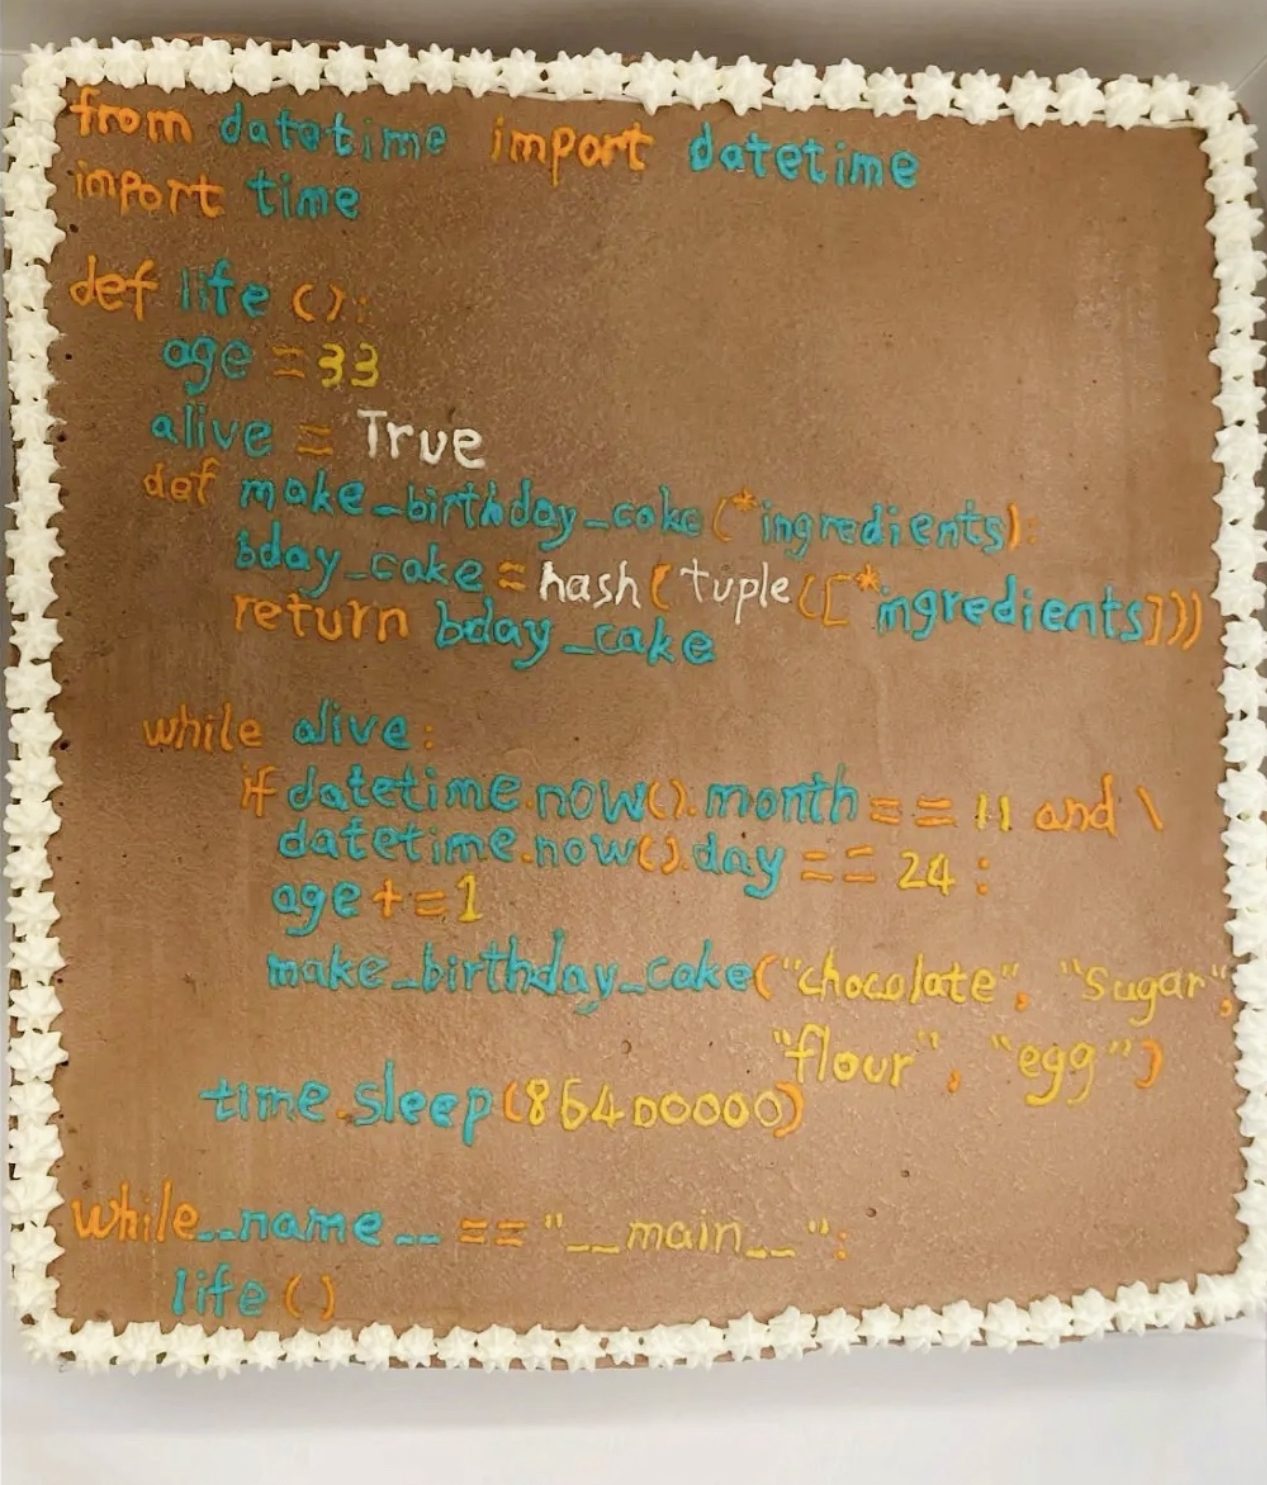 from datetime import datetime
import time
def life ():
age = 33
alive = True
def make_birthday_cake(*ingredients):
bday_cake = hash(tuple([*ingredients]))
return bday_cake
while alive:
if datetime.now().month == 11 and \
datetime.now().day == 24:
age += 1
make_birthday_cake("chocolate", "sugar",
"flour", "egg")
time.sleep(86400000)
while __name__ == "__main__":
life ()